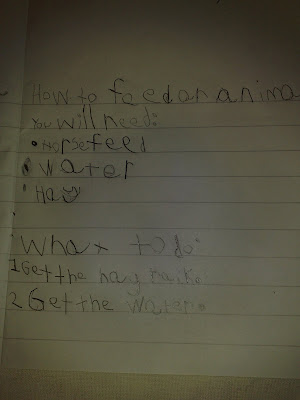 How to feed an anima
You will need:
• Horse feed
• Water
• Hay
What to do:
1 Get the hay
2 Get the water.